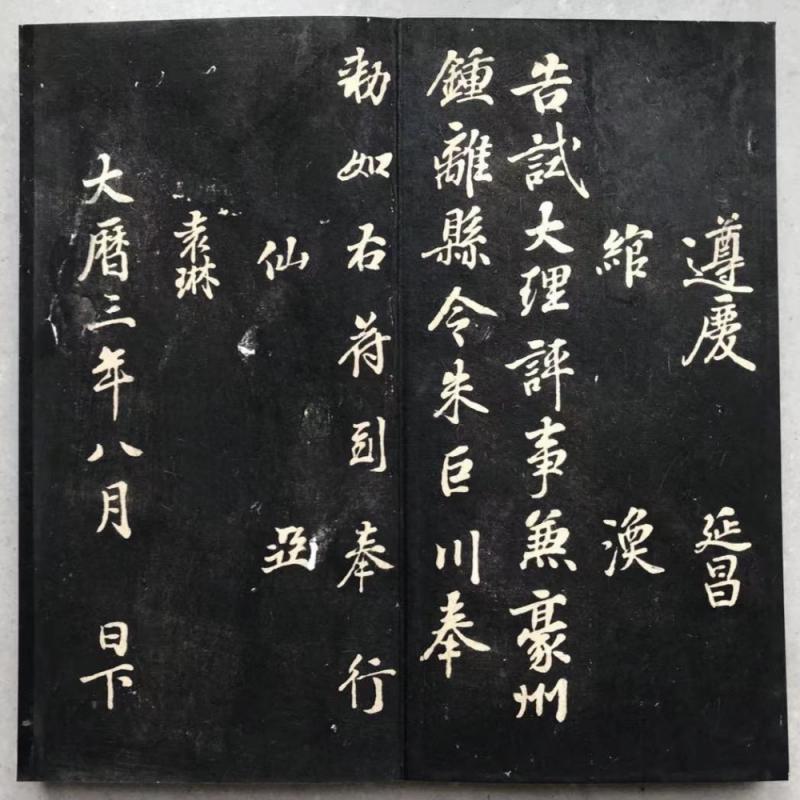 遵慶 延昌
綰 渙
告試大理評事兼豪州
鍾離縣令朱巨川奉
勑如右符到奉行
仙
袁琳
大曆三年八月 日下